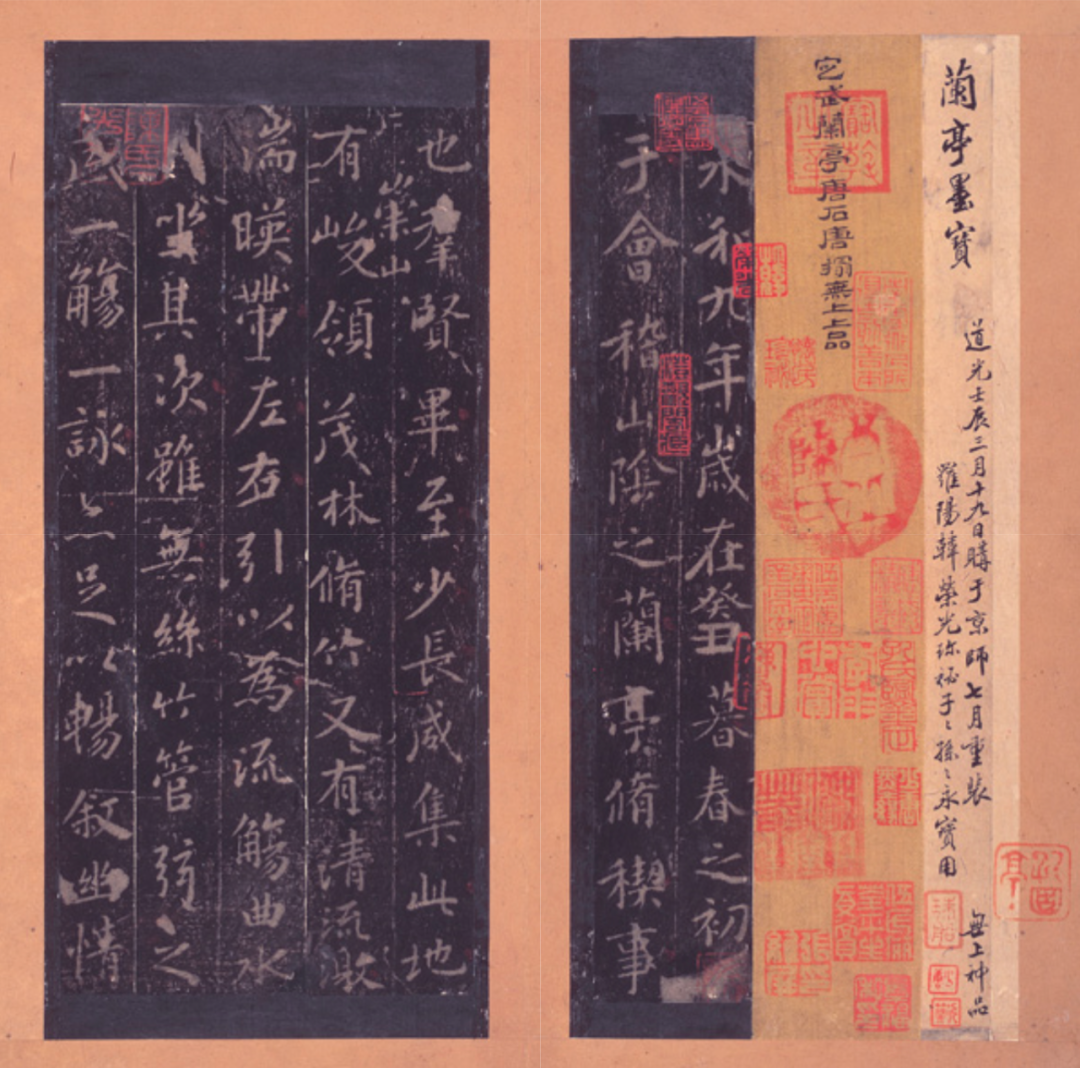 蘭亭墨寶
道光壬辰三月十九日購于京師七月重裝
羅陽韓榮光珎祕子〻孫〻永寶用
無上神品
定武蘭亭唐石唐搨無上上品
永和九年歲在癸丑暮春之初
于會稽山陰之蘭亭脩稧事
也羣賢畢至少長咸集此地
崇山
有峻領茂林脩竹又有清流激
湍暎帶左右引以為流觴曲水
列坐其次雖無絲竹管弦之
盛一觴一詠亦足以暢叙幽情